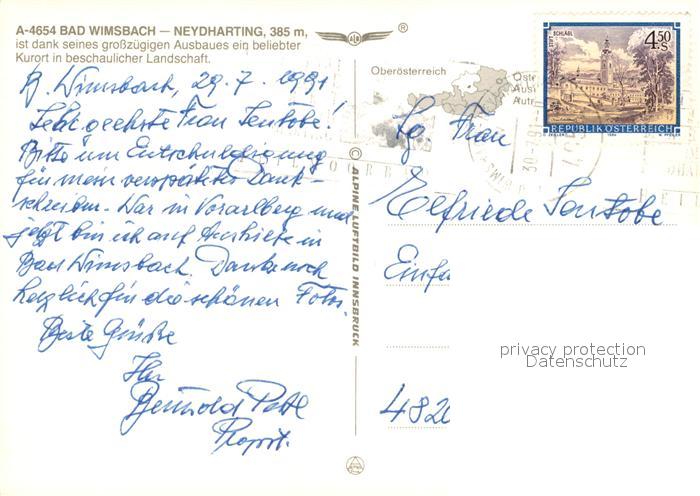 A-4654 BAD WIMSBACH — NEYDHARTING, 385 m,
ist dank seines großzügigen Ausbaues ein beliebter
Kurort in beschaulicher Landschaft.
B. Wimsbach, 29.7.1991
Sehr geehrte Frau Jentobe!
Bitte um Entschuldigung
für mein verspätetes Dank-
schreiben. War in Vorarlberg und
jetzt bin ich auf Aushilfe in
Bad Wimsbach. Danke noch
herzlich für die schönen Fotos.
Beste Grüße
Ihr
Propst.
© ALPINE LUFTBILD INNSBRUCK
®
Oberösterreich
STIFT SCHLÄGL
4.50 S
REPUBLIK ÖSTERREICH
Sg Frau
Elfriede Jentobe
Einfu
privacy protection
Datenschutz
482